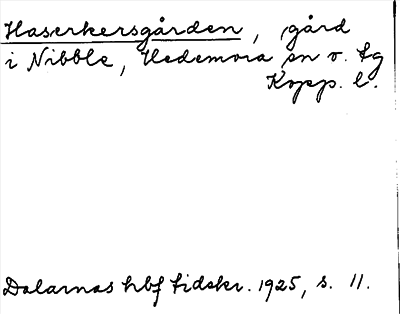 Haserkersgården, gård
i Nibble, Hedemora sn o. tg
Kopp. l.
Dalarnas hbf tidskr. 1925, s. 11.